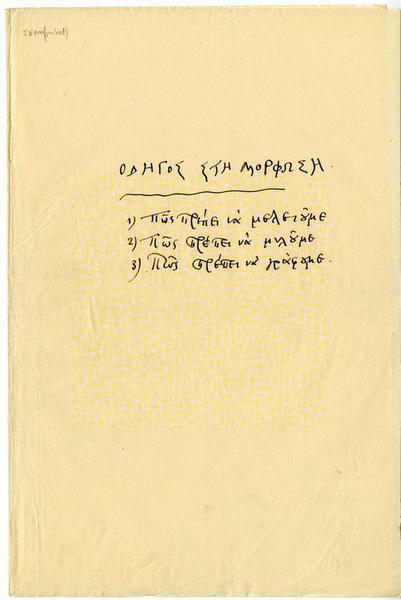 ΟΔΗΓΟΣ ΣΤΗ ΜΟΡΦΩΣΗ.
1) Πῶς πρέπει νὰ μελετοῦμε
2) Πῶς πρέπει νὰ μιλοῦμε
3) Πῶς πρέπει νὰ γράφομε.